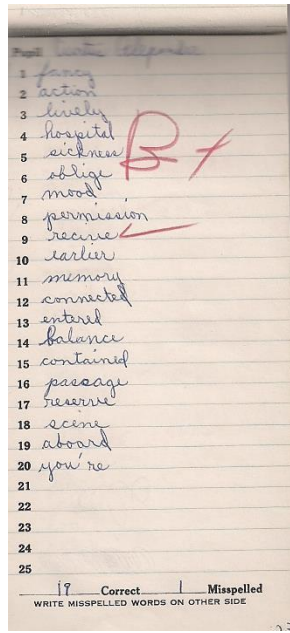 Pupil
1 fancy
2 action
3 lively
4 hospital
5 sickness
6 oblige
B+
7 mood
8 permission
9 recive
10 earlier
11 memory
12 connected
13 entered
14 balance
15 contained
16 passage
17 reserve
18 scene
19 aboard
20 you're
21
22
23
24
25
19 Correct 1 Misspelled
WRITE MISSPELLED WORDS ON OTHER SIDE